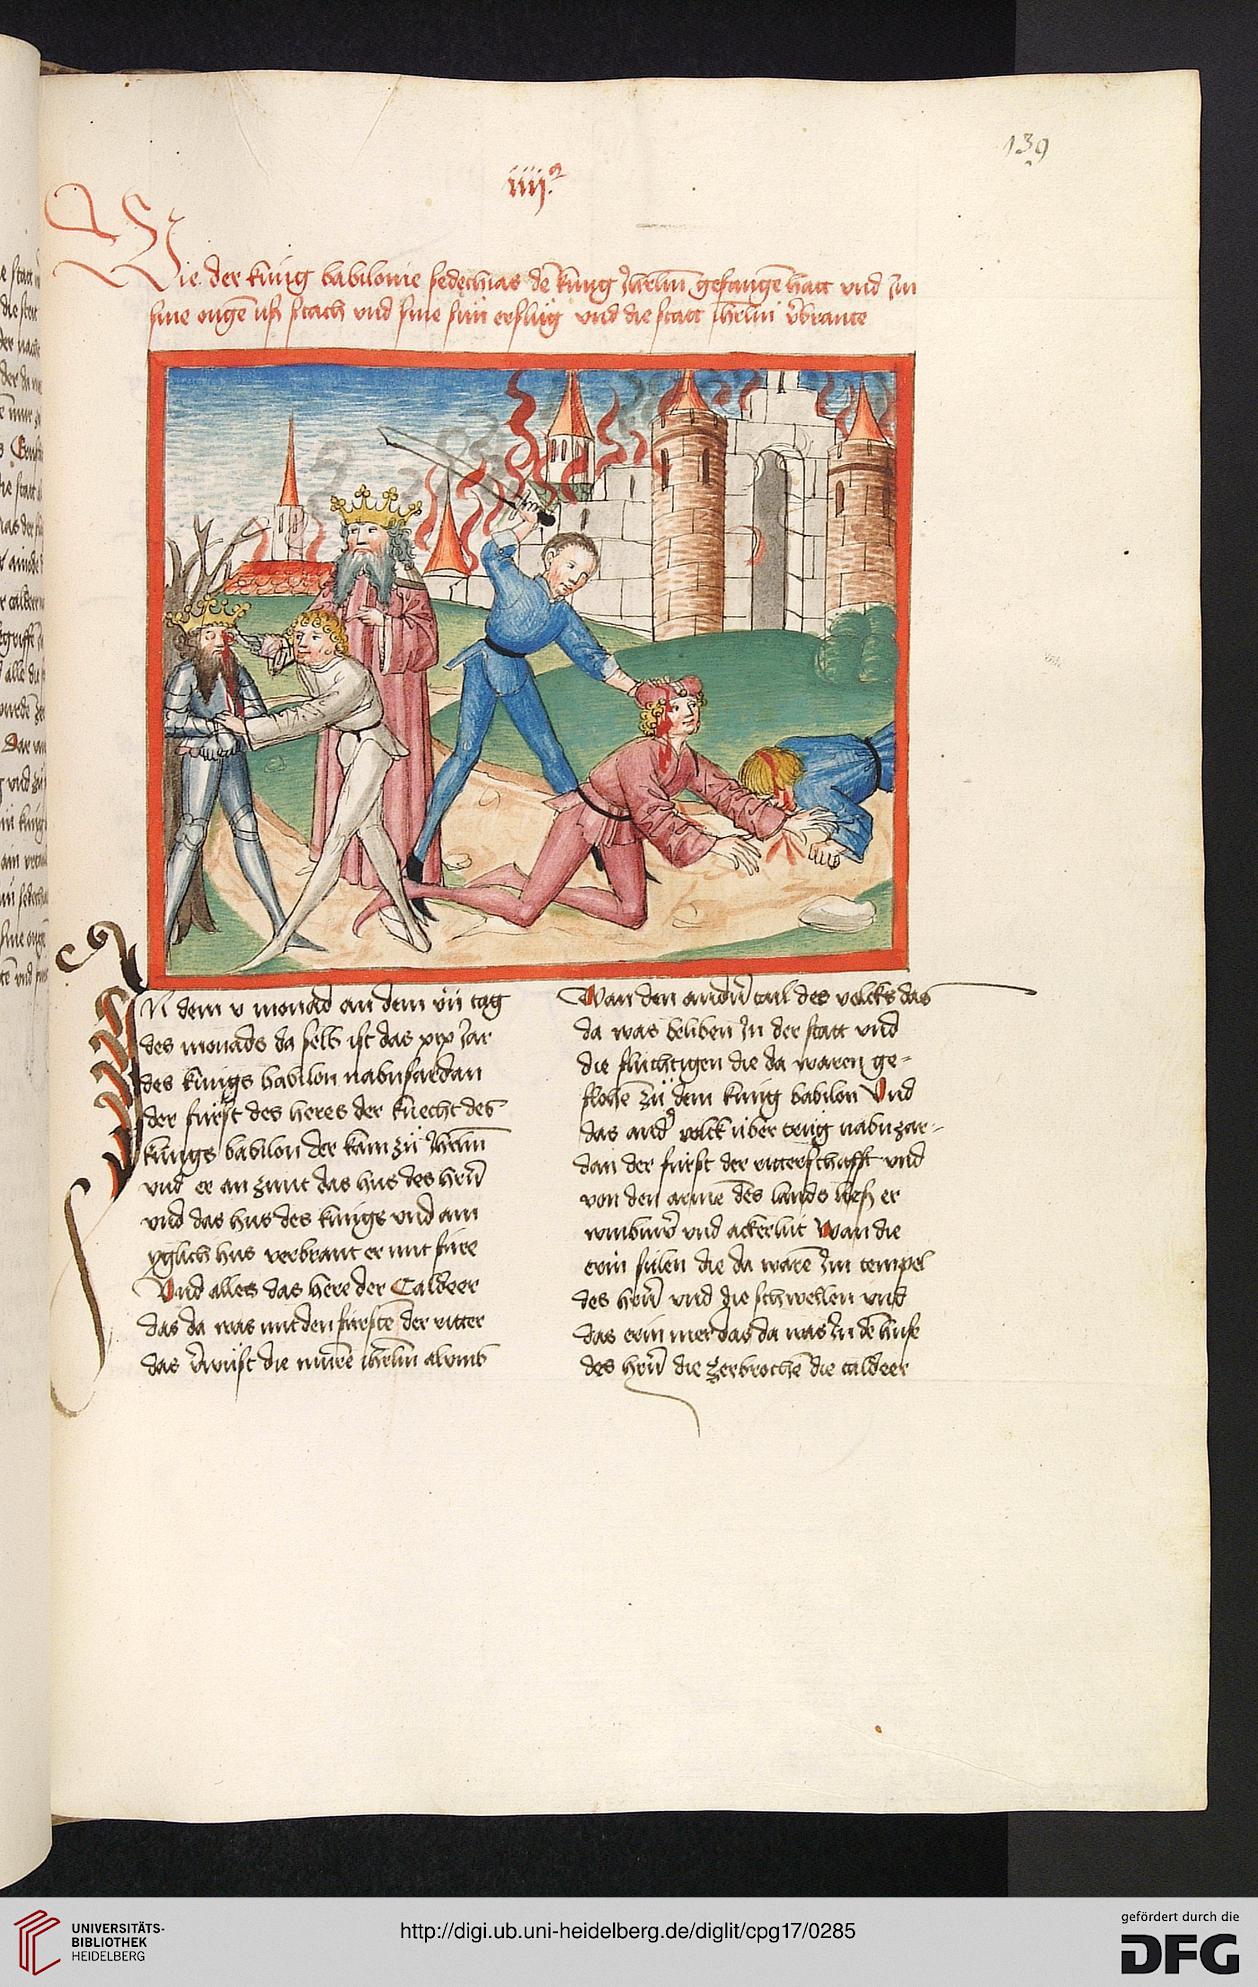 139
iiij.
Wie der küng babilonie sedechias dē küng Jherlm̄ gefangē hatt und Jm
sine ougē uſz stach vnd sine sün erslüg vnd die statt jherlm̄ v̄brante
IN dem v monad an dem vii tag
des monads da selb ist das xix Jar
des küngs babilon nabusardan
der fürst des heres der knecht des
küngs babilon der kam zü Jherlm̄
vnd er an zunt das hus des herr̄
vnd das hus des küngs vnd ain
yglich hus verbrant er mit füre
Vnd alles das here der Caldeer
das da was mit den fürstē der ritter
das v̄wüst die murē jherlm̄ al vmb
Wan den andr̄n tail des volcks das
da was beliben Jn der statt vnd
die fluchtigen die da waren ge-
flohē zü dem küng babilon Vnd
das and' volck über trüg nabuzar-
dan der fürst der ritterschafft vnd
von den armē des lands liesz er
winbuw̄ vnd ackerlüt Wan die
erin sülen die da warē Jm tempel
des herr̄ vnd die schwellen vnd
das erin mer das da was Jn dē huse
des herr̄ die zerbrochē die caldeer
UNIVERSITÄTS-
BIBLIOTHEK
HEIDELBERG
http://digi.ub.uni-heidelberg.de/diglit/cpg17/0285
gefördert durch die
DFG